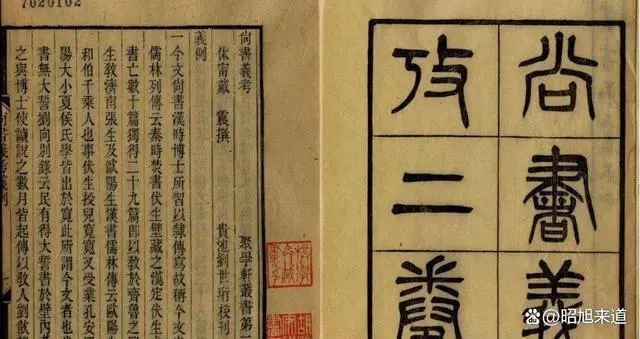 7020102
尚書義
攷二卷
尚書義考 聚學軒叢書第一
休寧戴 震撰 貴池劉世珩校刊
義例
一今文尚書漢時博士所習以隸傳寫故稱今文
儒林列傳云秦時焚書伏生壁藏之漢定伏生
書亡數十篇獨得二十九篇即以教於齊魯之
生教濟南張生及歐陽生漢書儒林傳云歐陽
和伯千乘人也事伏生授兒寬寬又受業孔安
陽大小夏侯氏學皆出於寬此所謂今文者也
書無大誓劉向別錄云民有得大誓書於壁內
之與博士使讀說之數月皆起傳以教人劉歆
尚書義考義例
@昭旭来道